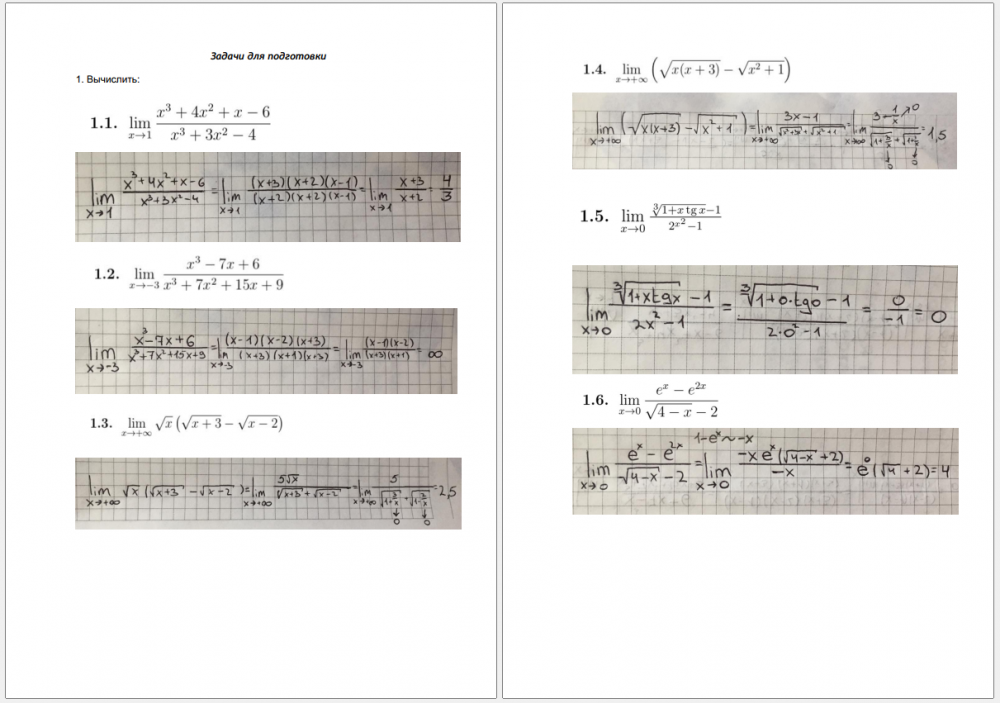 Задачи для подготовки
1. Вычислить:
1.1. lim x→1 (x³ + 4x² + x − 6)/(x³ + 3x² − 4)
lim x→1 (x³+4x²+x-6)/(x³+3x²-4) = lim x→1 ((x+3)(x+2)(x-1))/((x+2)(x+2)(x-1)) = lim x→1 (x+3)/(x+2) = 4/3
1.2. lim x→−3 (x³ − 7x + 6)/(x³ + 7x² + 15x + 9)
lim x→-3 (x³-7x+6)/(x³+7x²+15x+9) = lim x→-3 ((x-1)(x-2)(x+3))/((x+3)(x+1)(x+3)) = lim x→-3 ((x-1)(x-2))/((x+3)(x+1)) = ∞
1.3. lim x→+∞ √x (√(x + 3) − √(x − 2))
lim x→+∞ √x (√(x+3) - √(x-2)) = lim x→+∞ 5√x/(√(x+3) + √(x-2)) = lim x→+∞ 5/(√(1+3/x) + √(1-2/x)) = 2,5
↓ ↓
0 0
1.4. lim x→+∞ (√(x(x + 3)) − √(x² + 1))
lim x→+∞ (√(x(x+3)) - √(x²+1)) = lim x→+∞ (3x-1)/(√(x²+3x) + √(x²+1)) = lim x→+∞ (3-1/x ↗0)/(√(1+3/x) + √(1+1/x²)) = 1,5
↓ ↓
0 0
1.5. lim x→0 (∛(1+x tg x)−1)/(2^(x²)−1)
lim x→0 (∛(1+xtgx) - 1)/(2x²-1) = (∛(1+0·tg0) - 1)/(2·0²-1) = 0/-1 = 0
1.6. lim x→0 (eˣ − e²ˣ)/(√(4 − x) − 2)
1-eˣ~-x
lim x→0 (eˣ - e²ˣ)/(√(4-x) - 2) = lim x→0 (-x eˣ(√(4-x) +2))/(-x) = e⁰(√4 +2) = 4